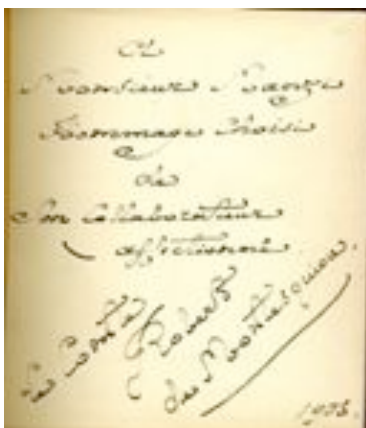 A
Monsieur Manzi
Hommage choisi
de
Son Collaborateur
affectionné
Le Comte
Robert
de Montesquiou.